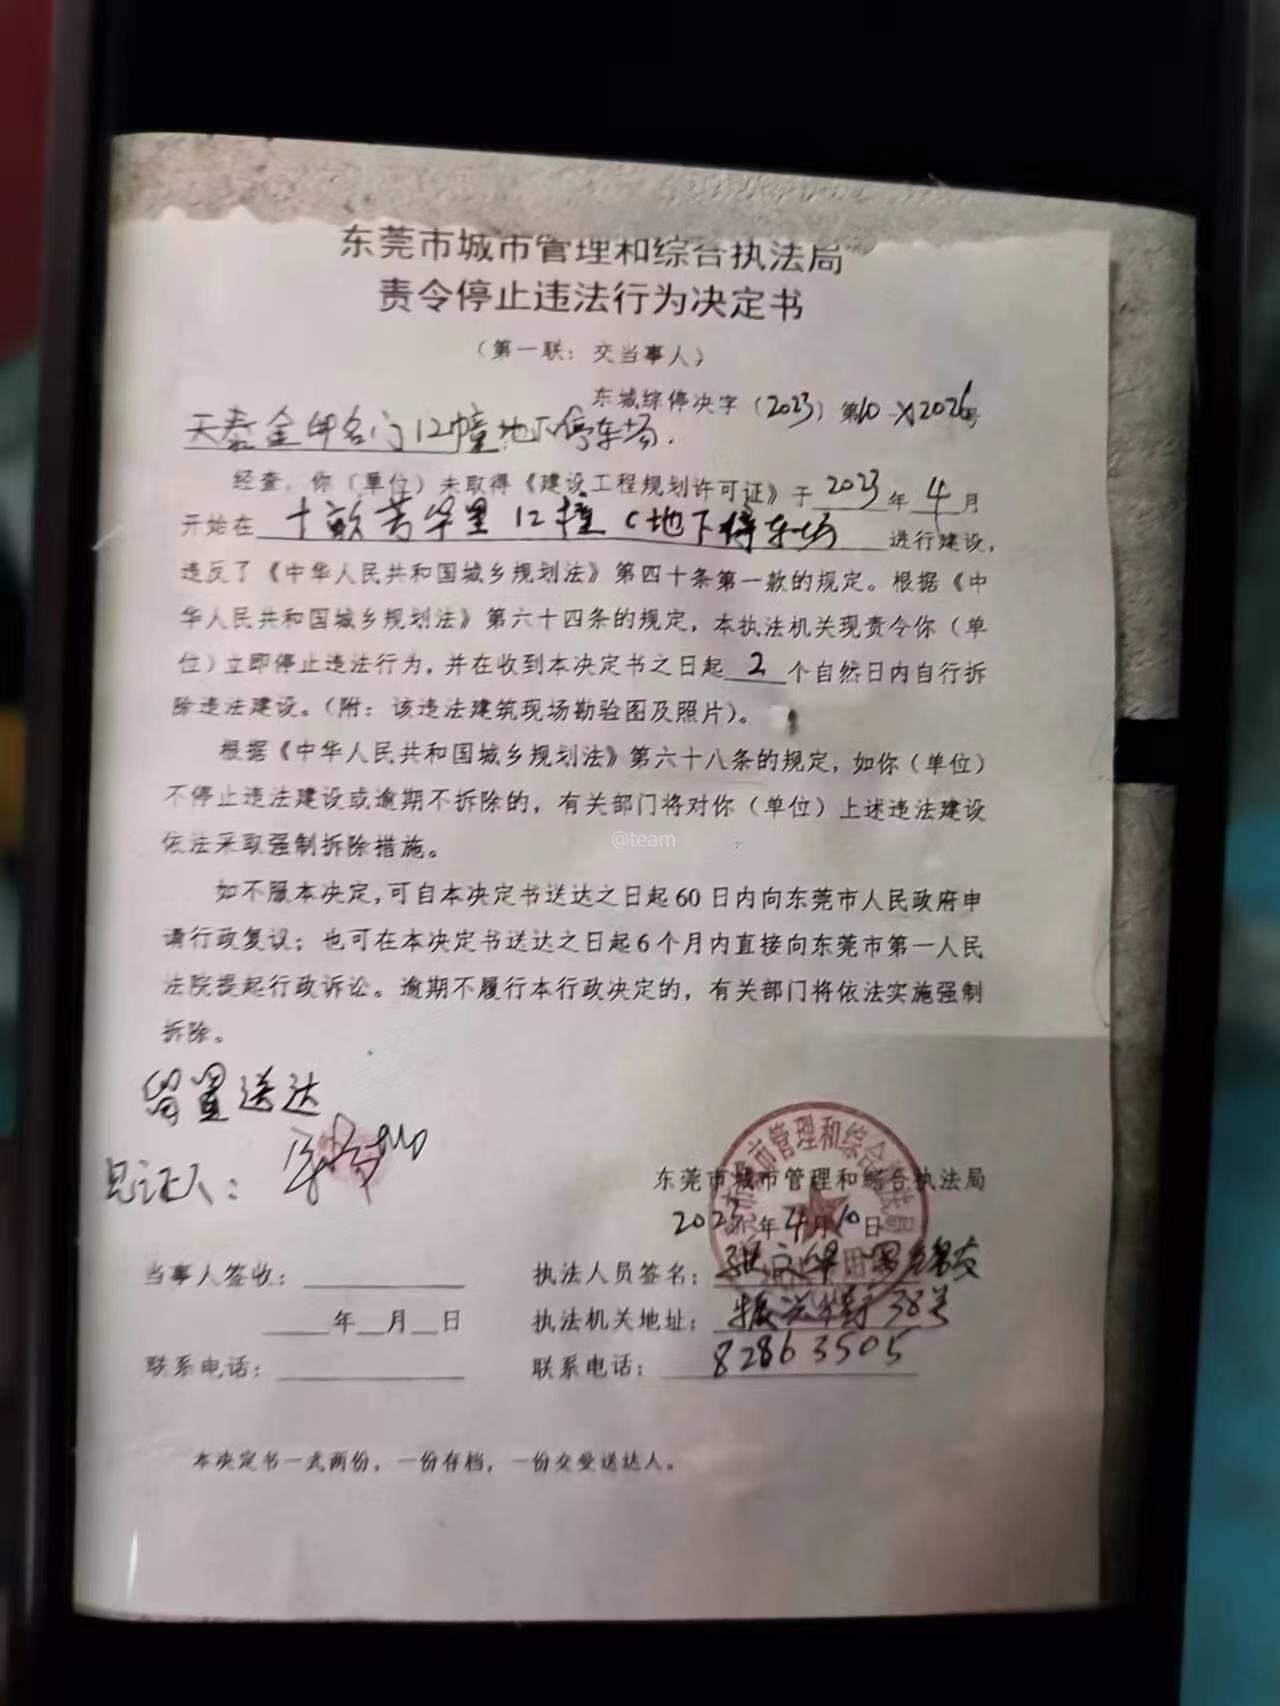 东莞市城市管理和综合执法局
责令停止违法行为决定书
（第一联：交当事人）
东城综停决字（2023）第10-X2026号
天泰金甲名门12幢地下停车场.
经查，你（单位）未取得《建设工程规划许可证》于2023年4月
开始在十畝芳华里12撞（地下停车场进行建设，
违反了《中华人民共和国城乡规划法》第四十条第一款的规定。根据《中
华人民共和国城乡规划法》第六十四条的规定，本执法机关现责令你（单
位）立即停止违法行为，并在收到本决定书之日起2个自然日内自行拆
除违法建设。（附：该违法建筑现场勘验图及照片）。
根据《中华人民共和国城乡规划法》第六十八条的规定，如你（单位）
不停止违法建设或逾期不拆除的，有关部门将对你（单位）上述违法建设
依法采取强制拆除措施。
@team
如不服本决定，可自本决定书送达之日起60日内向东莞市人民政府申
请行政复议；也可在本决定书送达之日起6个月内直接向东莞市第一人民
法院提起行政诉讼。逾期不履行本行政决定的，有关部门将依法实施强制
拆除。
留置送达
见证人：
东莞市城市管理和综合执法局
2023年4月10日
当事人签收：
执法人员签名：张文华
年 月 日
执法机关地址：振兴街38号
联系电话：
联系电话：82863505
本决定书一式两份，一份存档，一份交受送达人。
市管理和综合执法局